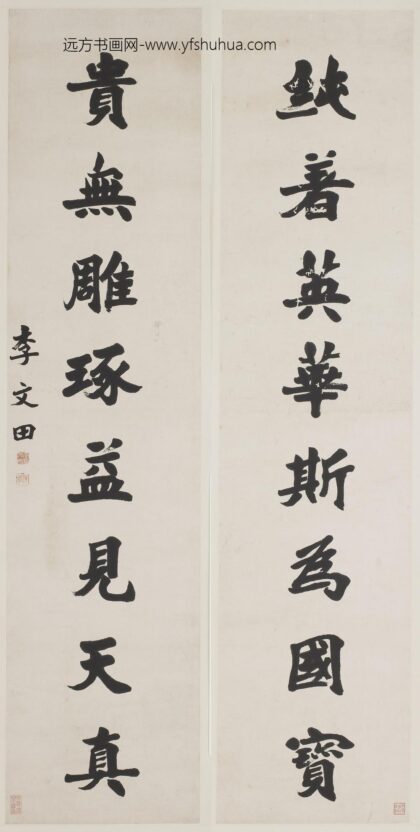 远方书画网-www.yfshuhua.com
純著英華斯為國寶
貴無雕琢益見天真
李文田